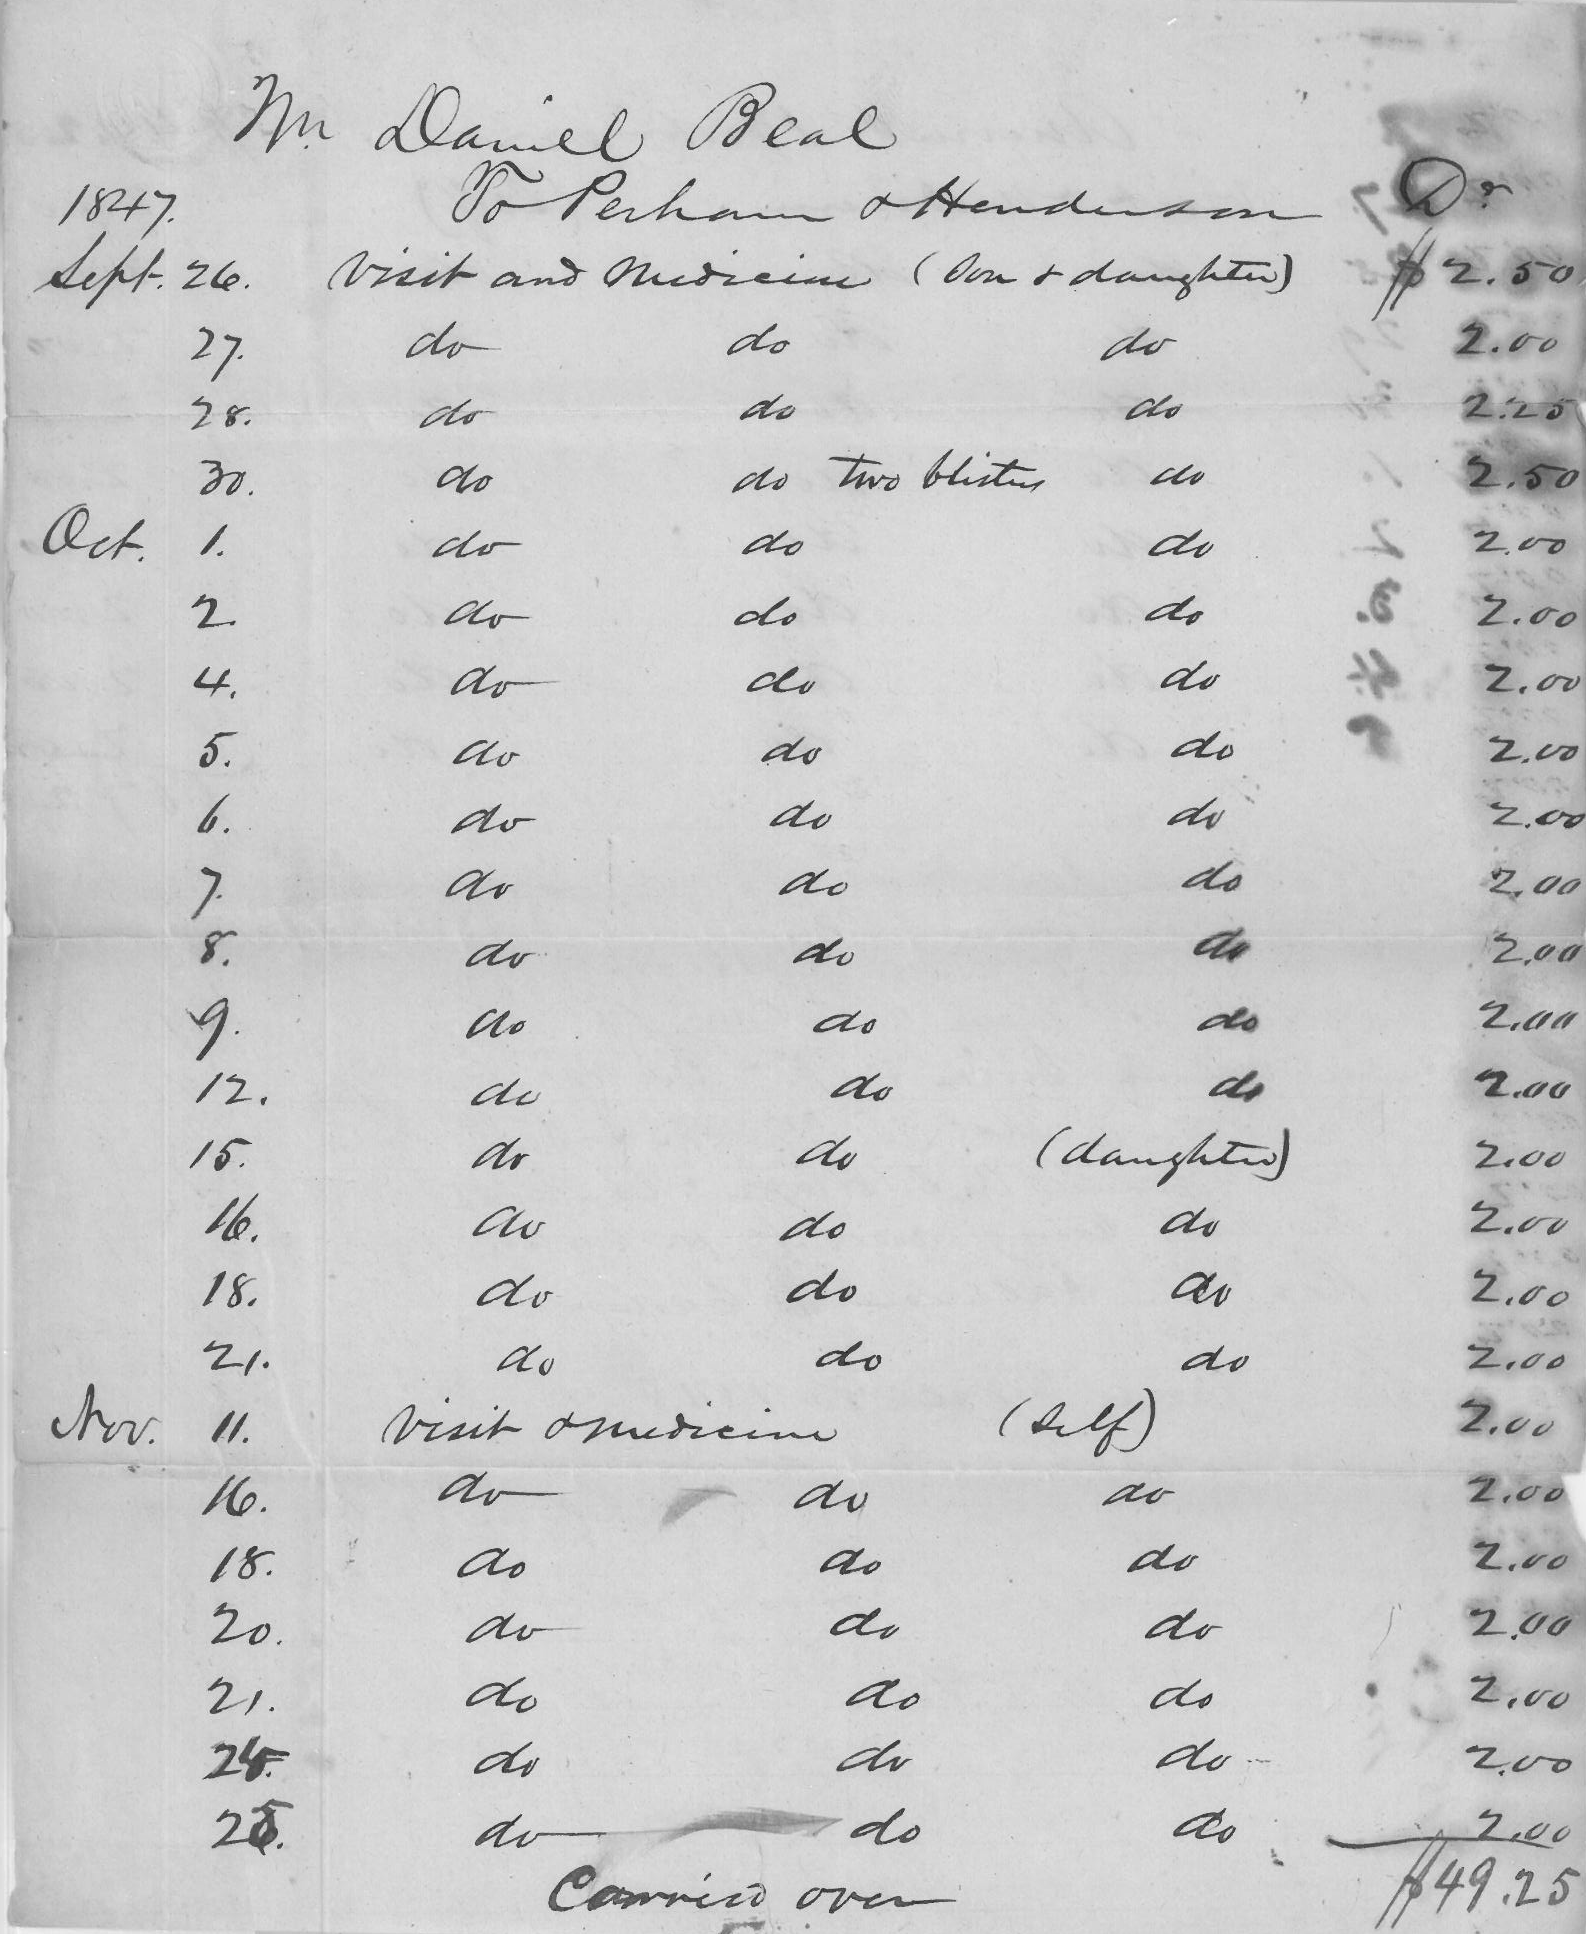 Mr. Daniel Beal
1847. To Perham & Henderson Dr
Sept. 26. Visit and Medicine (Son & daughter) $2.50
27. do do do 2.00
28. do do do 2.25
30. do do two blisters do 2.50
Oct. 1. do do do 2.00
2. do do do 2.00
4. do do do 2.00
5. do do do 2.00
6. do do do 2.00
7. do do do 2.00
8. do do do 2.00
9. do do do 2.00
12. do do do 2.00
15. do do (daughter) 2.00
16. do do do 2.00
18. do do do 2.00
21. do do do 2.00
Nov. 11. Visit & medicine (Self) 2.00
16. do do do 2.00
18. do do do 2.00
20. do do do 2.00
21. do do do 2.00
do do do 2.00
do do do 2.00
Carried over $49.25